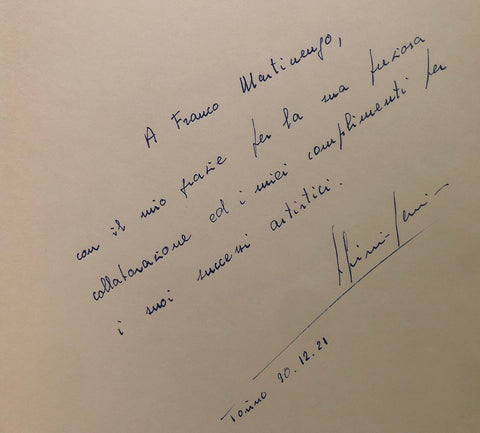 A Franco Martinengo,
con il mio grazie per la sua preziosa
collaborazione ed i miei complimenti per
i suoi successi artistici.
Torino 20.12.21